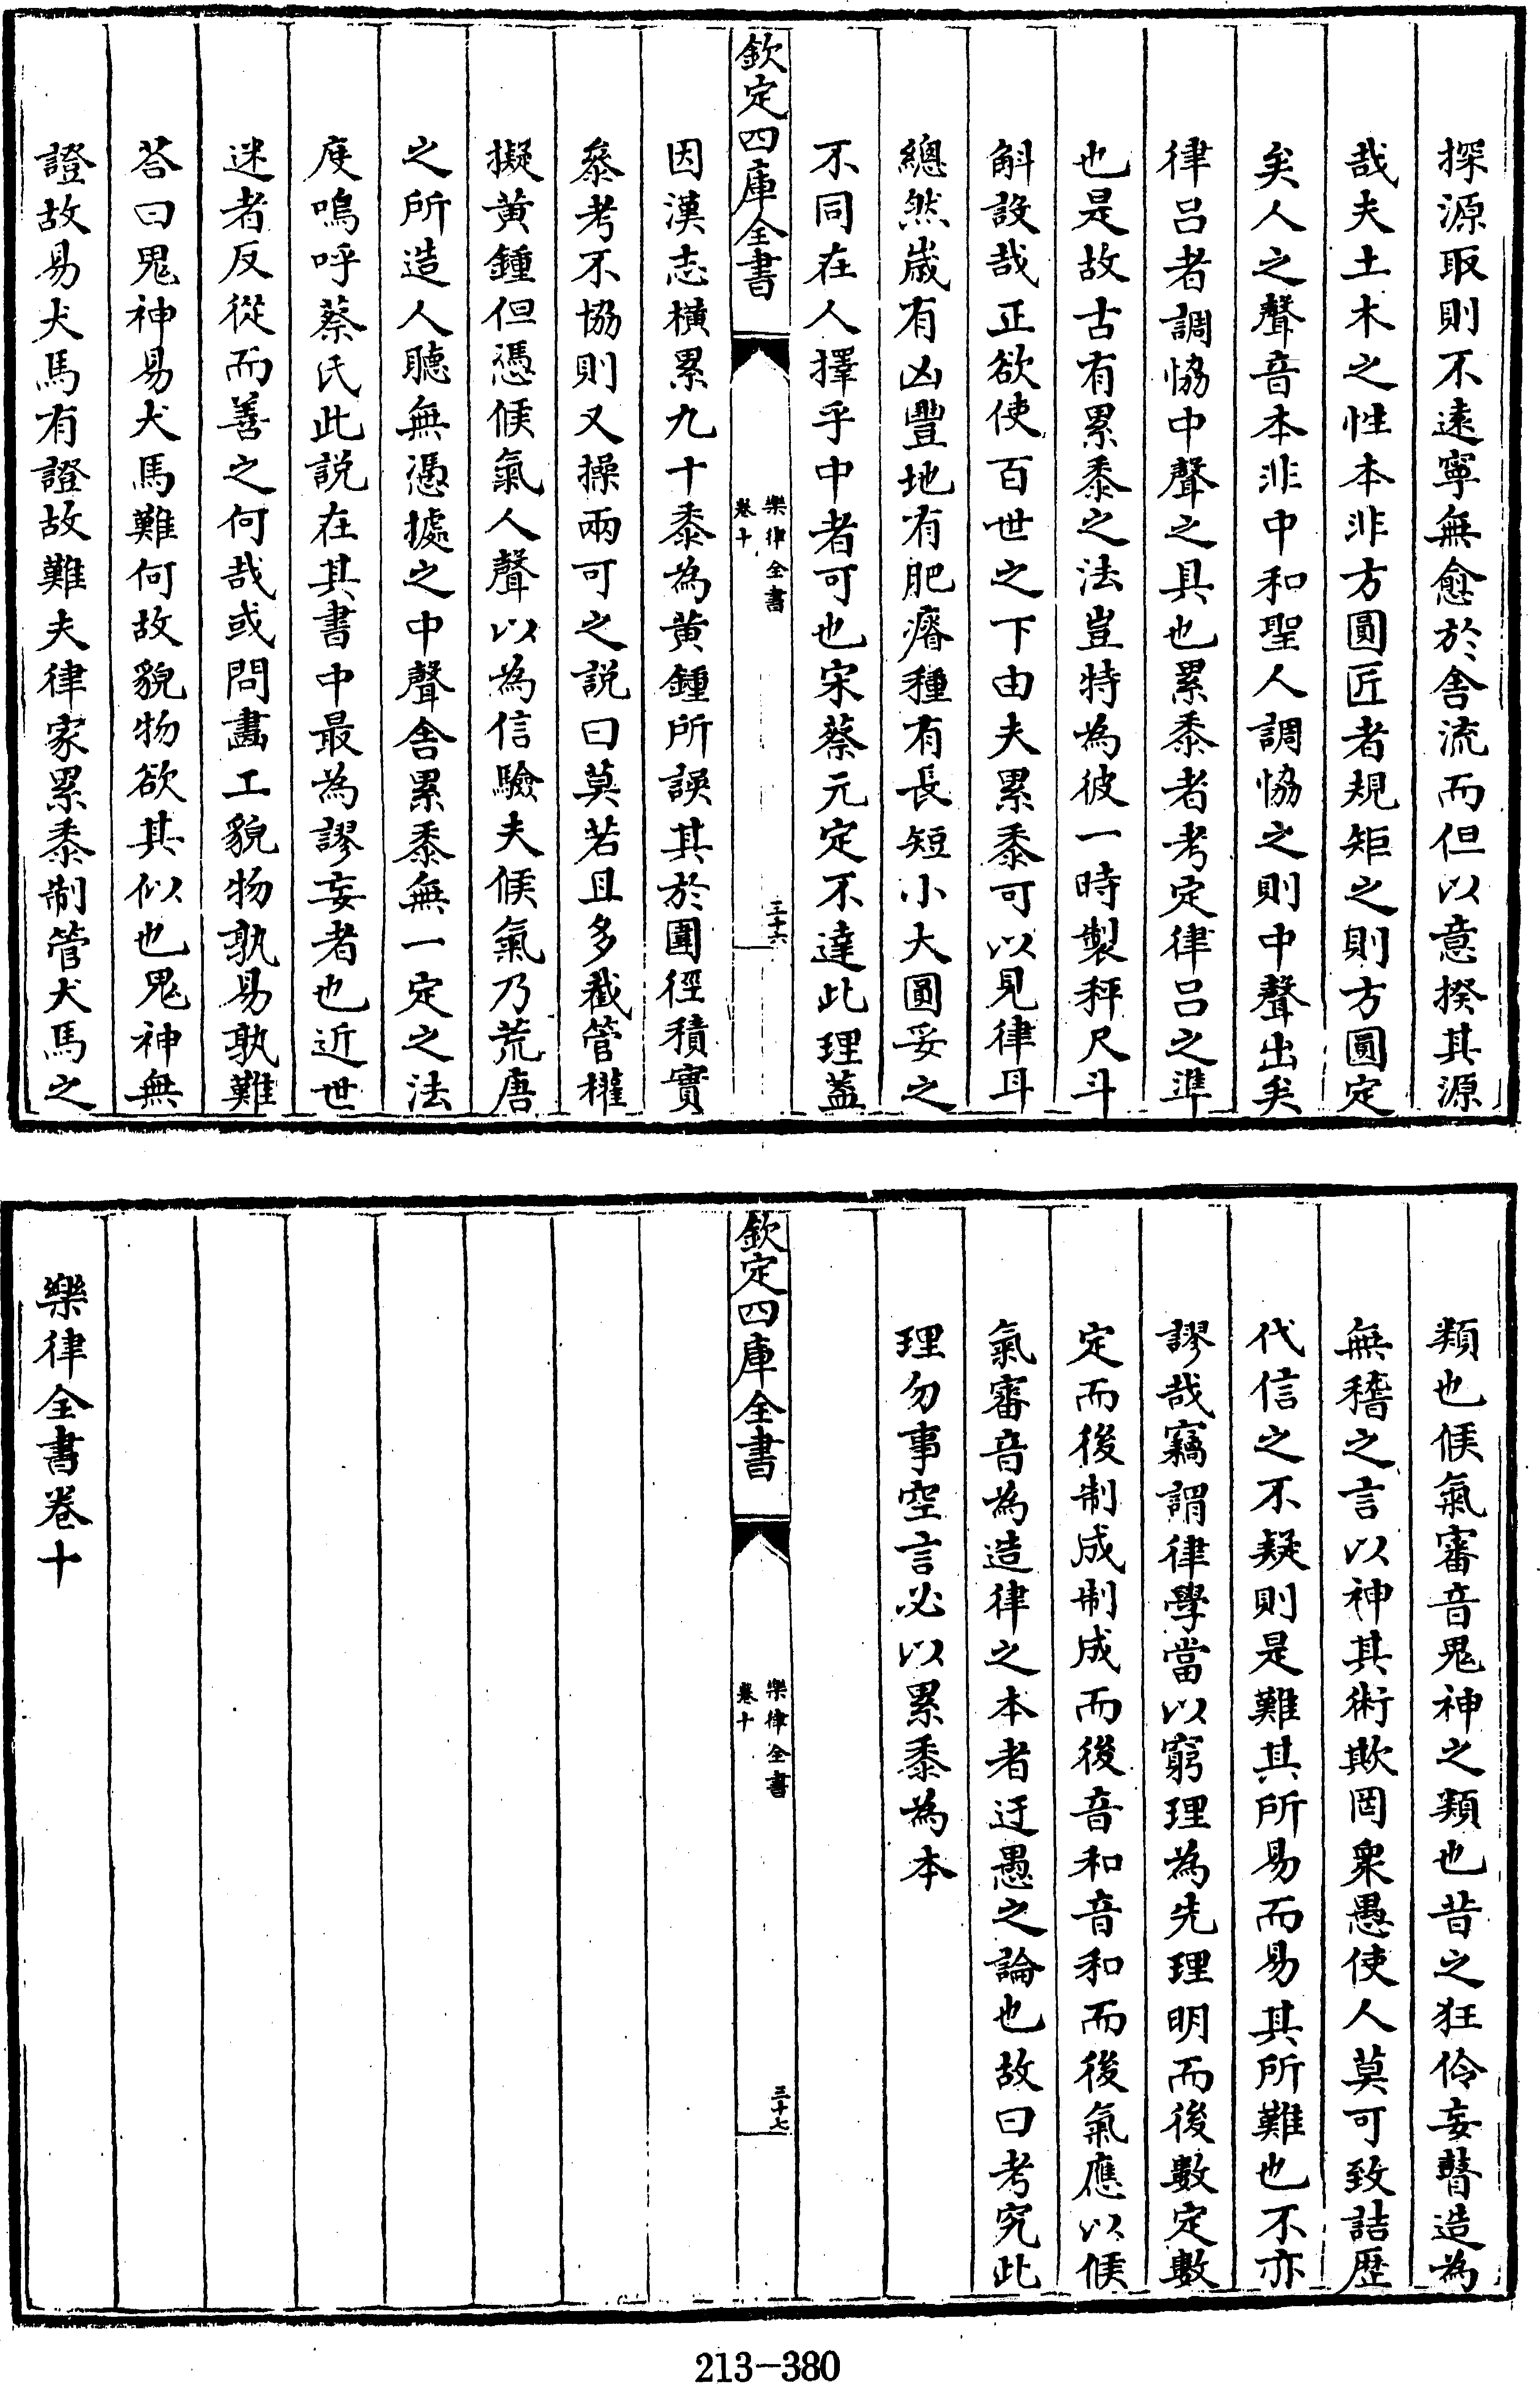 探源取則不遠寧無愈於舍流而但以意揆其源
哉夫土木之性本非方圓匠者規矩之則方圓定
矣人之聲音本非中和聖人調恊之則中聲出矣
律呂者調恊中聲之具也累黍者考定律呂之準
也是故古有累黍之法豈特為彼一時製秤尺斗
斛設哉正欲使百世之下由夫累黍可以見律耳
總然嵗有凶豐地有肥瘠種有長短小大圓妥之
不同在人擇乎中者可也宋蔡元定不達此理葢
欽定四庫全書
樂律全書
卷十
三十六
因漢志横累九十黍為黄鍾所誤其於圍徑積實
叅考不協則又操兩可之説曰莫若且多截管權
擬黄鍾但憑候氣人聲以為信驗夫候氣乃荒唐
之所造人聽無憑據之中聲舍累黍無一定之法
度嗚呼蔡氏此説在其書中最為謬妄者也近世
迷者反從而善之何哉或問畫工貌物孰易孰難
荅曰鬼神易犬馬難何故貌物欲其似也鬼神無
證故易犬馬有證故難夫律家累黍制管犬馬之
類也候氣審音鬼神之類也昔之狂伶妄瞽造為
無稽之言以神其術欺罔衆愚使人莫可致詰歴
代信之不疑則是難其所易而易其所難也不亦
謬哉竊謂律學當以窮理為先理明而後數定數
定而後制成制成而後音和音和而後氣應以候
氣審音為造律之本者迂愚之論也故曰考究此
理勿事空言必以累黍為本
欽定四庫全書
樂律全書
卷十
三十七
樂律全書卷十
213-380